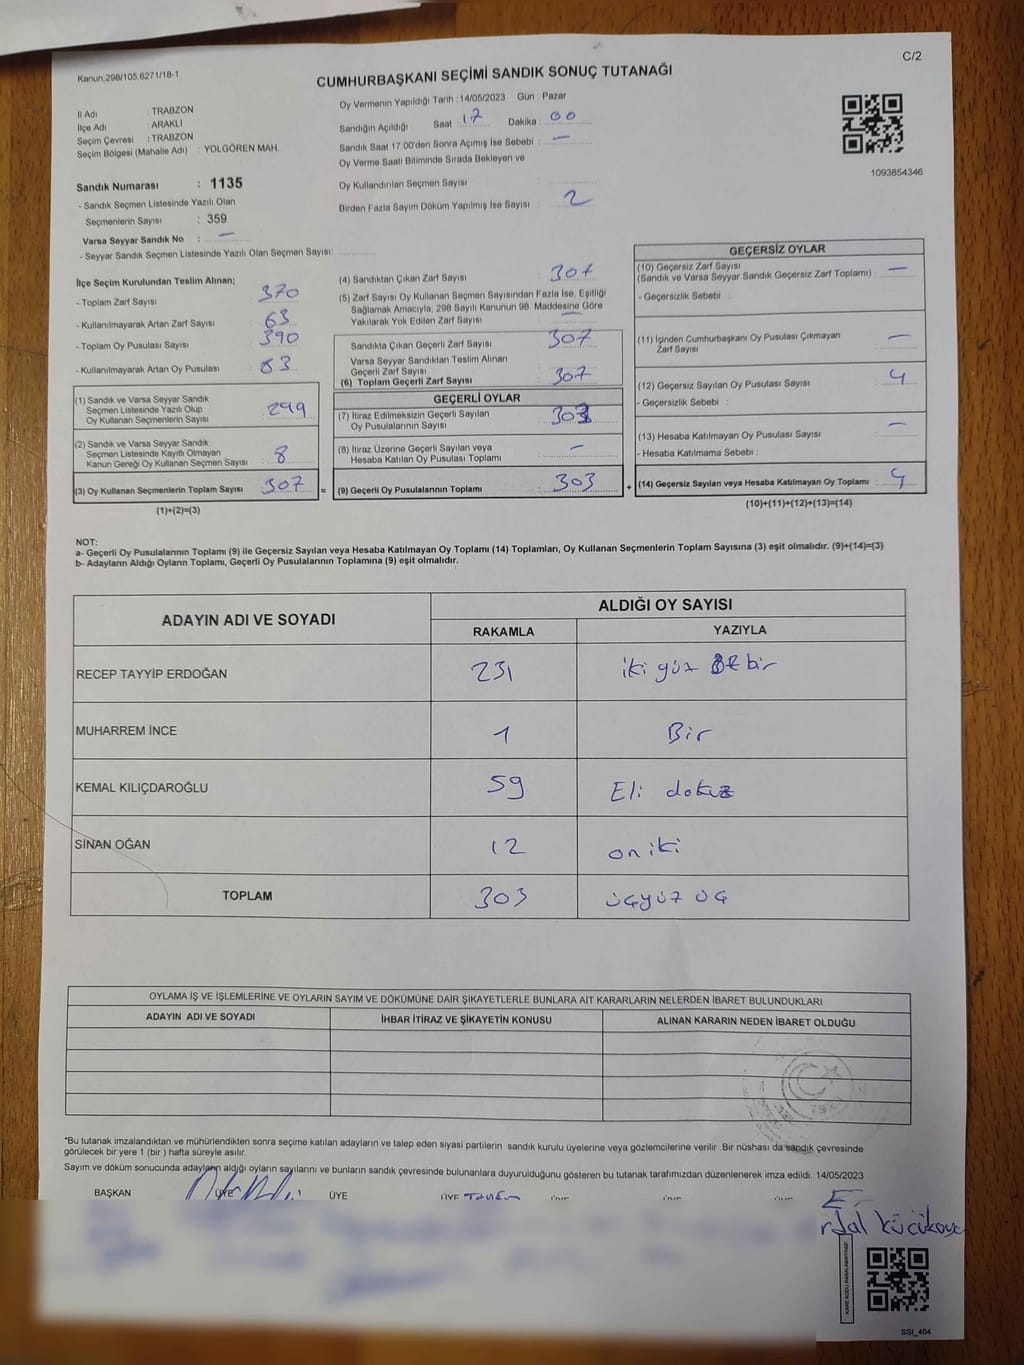 Kanun,298/105,6271/18-1
C/2
CUMHURBAŞKANI SEÇİMİ SANDIK SONUÇ TUTANAĞI
İl Adı : TRABZON
İlçe Adı : ARAKLI
Seçim Çevresi : TRABZON
Seçim Bölgesi (Mahalle Adı) : YOLGÖREN MAH.
Sandık Numarası : 1135
- Sandık Seçmen Listesinde Yazılı Olan
Seçmenlerin Sayısı : 359
Varsa Seyyar Sandık No : —
- Seyyar Sandık Seçmen Listesinde Yazılı Olan Seçmen Sayısı:
Oy Vermenin Yapıldığı Tarih : 14/05/2023 Gün : Pazar
Sandığın Açıldığı Saat : 17 Dakika : 00
Sandık Saat 17:00'den Sonra Açımış İse Sebebi : —
Oy Verme Saati Bitiminde Sırada Bekleyen ve
Oy Kullandırılan Seçmen Sayısı :
Birden Fazla Sayım Döküm Yapılmış İse Sayısı : 2
1093854346
İlçe Seçim Kurulundan Teslim Alınan;
- Toplam Zarf Sayısı : 370
- Kullanılmayarak Artan Zarf Sayısı : 63
- Toplam Oy Pusulası Sayısı : 390
- Kullanılmayarak Artan Oy Pusulası : 83
(1) Sandık ve Varsa Seyyar Sandık
Seçmen Listesinde Yazılı Olup
Oy Kullanan Seçmenlerin Sayısı : 299
(2) Sandık ve Varsa Seyyar Sandık
Seçmen Listesinde Kayıtlı Olmayan
Kanun Gereği Oy Kullanan Seçmen Sayısı : 8
(3) Oy Kullanan Seçmenlerin Toplam Sayısı : 307 =
(1)+(2)=(3)
(4) Sandıktan Çıkan Zarf Sayısı : 307
(5) Zarf Sayısı Oy Kullanan Seçmen Sayısından Fazla İse, Eşitliği
Sağlamak Amacıyla, 298 Sayılı Kanunun 98. Maddesine Göre
Yakılarak Yok Edilen Zarf Sayısı : —
Sandıkta Çıkan Geçerli Zarf Sayısı : 307
Varsa Seyyar Sandıktan Teslim Alınan
Geçerli Zarf Sayısı :
(6) Toplam Geçerli Zarf Sayısı : 307
GEÇERLİ OYLAR
(7) İtiraz Edilmeksizin Geçerli Sayılan
Oy Pusulalarının Sayısı : 303
(8) İtiraz Üzerine Geçerli Sayılan veya
Hesaba Katılan Oy Pusulası Toplamı : —
(9) Geçerli Oy Pusulalarının Toplamı : 303 +
GEÇERSİZ OYLAR
(10) Geçersiz Zarf Sayısı
(Sandık ve Varsa Seyyar Sandık Geçersiz Zarf Toplamı) : —
- Geçersizlik Sebebi :
(11) İçinden Cumhurbaşkanı Oy Pusulası Çıkmayan
Zarf Sayısı : —
(12) Geçersiz Sayılan Oy Pusulası Sayısı : 4
- Geçersizlik Sebebi :
(13) Hesaba Katılmayan Oy Pusulası Sayısı : —
- Hesaba Katılmama Sebebi :
(14) Geçersiz Sayılan veya Hesaba Katılmayan Oy Toplamı : 4
(10)+(11)+(12)+(13)=(14)
NOT:
a- Geçerli Oy Pusulalarının Toplamı (9) ile Geçersiz Sayılan veya Hesaba Katılmayan Oy Toplamı (14) Toplamları, Oy Kullanan Seçmenlerin Toplam Sayısına (3) eşit olmalıdır. (9)+(14)=(3)
b- Adayların Aldığı Oyların Toplamı, Geçerli Oy Pusulalarının Toplamına (9) eşit olmalıdır.
ADAYIN ADI VE SOYADI ALDIĞI OY SAYISI
RAKAMLA YAZIYLA
RECEP TAYYİP ERDOĞAN 231 iki yüz bir
MUHARREM İNCE 1 Bir
KEMAL KILIÇDAROĞLU 59 Eli dokuz
SİNAN OĞAN 12 on iki
TOPLAM 303 üçyüz üç
OYLAMA İŞ VE İŞLEMLERİNE VE OYLARIN SAYIM VE DÖKÜMÜNE DAİR ŞİKAYETLERLE BUNLARA AİT KARARLARIN NELERDEN İBARET BULUNDUKLARI
ADAYIN ADI VE SOYADI İHBAR İTİRAZ VE ŞİKAYETİN KONUSU ALINAN KARARIN NEDEN İBARET OLDUĞU
*Bu tutanak imzalandıktan ve mühürlendikten sonra seçime katılan adayların ve talep eden siyasi partilerin sandık kurulu üyelerine veya gözlemcilerine verilir. Bir nüshası da sandık çevresinde
görülecek bir yere 1 (bir ) hafta süreyle asılır.
Sayım ve döküm sonucunda adayların aldığı oyların sayılarını ve bunların sandık çevresinde bulunanlara duyurulduğunu gösteren bu tutanak tarafımızdan düzenlenerek imza edildi. 14/05/2023
BAŞKAN ÜYE ÜYE ÜYE ÜYE ÜYE ÜYE
SSI_404